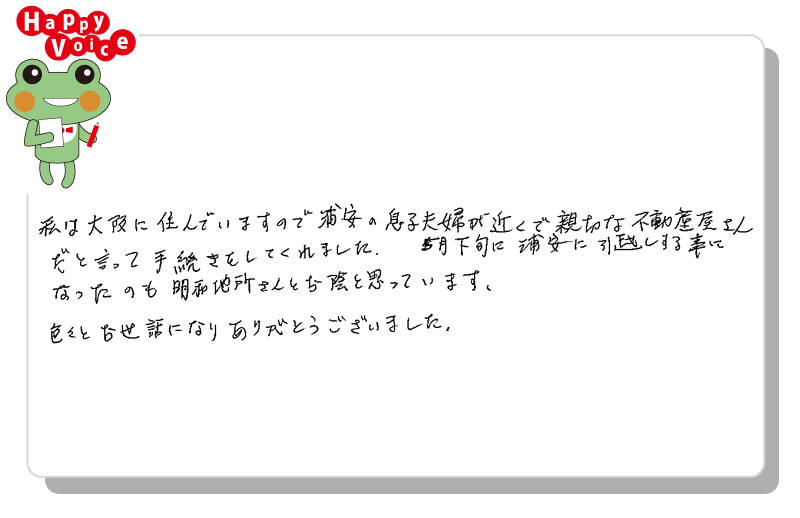 Happy
Voice
私は大阪に住んでいますので浦安の息子夫婦が近くで親切な不動産屋さん
だと言って手続きをしてくれました. 5月下旬に浦安に引越しする事に
なったのも明和地所さんとお陰と思っています、
色々とお世話になりありがとうございました.